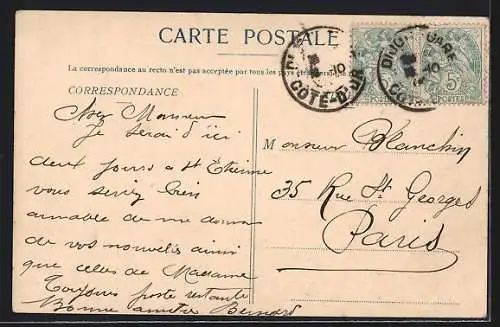 CARTE POSTALE
La correspondance au recto n'est pas acceptée par tous les pays
CORRESPONDANCE
Cher Monsieur
Je serai d'ici
deux jours à St Etienne
vous seriez bien
aimable de me donner
de vos nouvelles ainsi
que celles de Madame
Toujours poste restante
Bonne Bernard
Monsieur Blanchin
35 Rue St. Georges
Paris
DIJON GARE
CÔTE-D'OR
10
POSTES
5